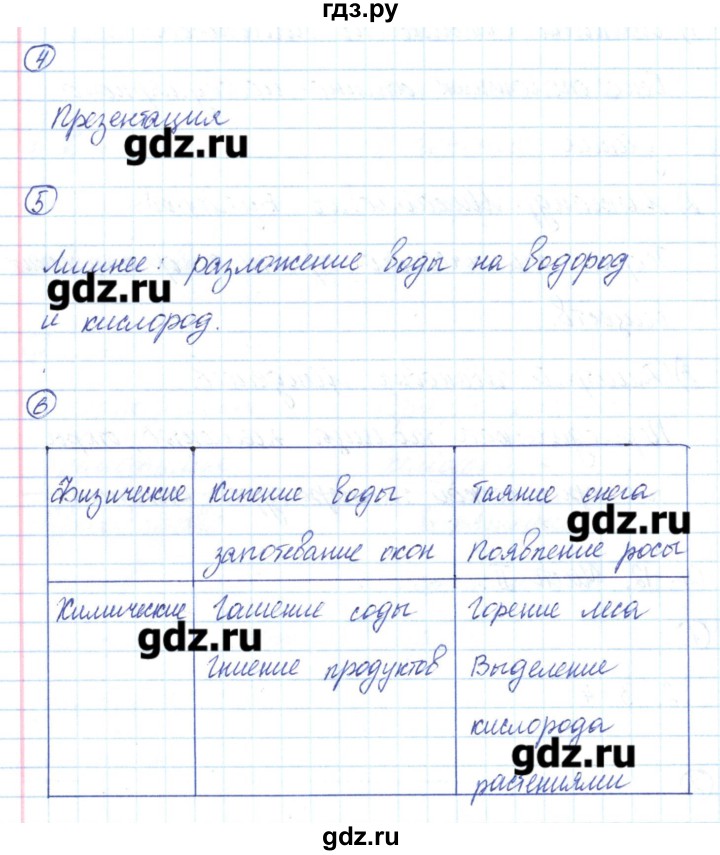 гдз.ру
4
Презентация
gdz.ru
5
Лишнее: разложение воды на водород
gdz.ru
и кислород.
6
Физические Кипение воды Таяние снега
gdz.ru
запотевание окон Появление росы
Химические Гашение соды Горение леса
gdz.ru
Гниение продуктов Выделение
кислорода
gdz.ru
растениями
gdz.ru